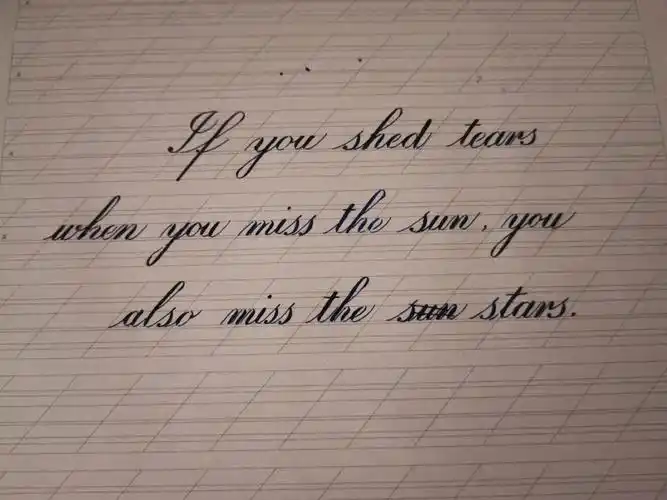 If you shed tears
when you miss the sun, you
also miss the sun stars.